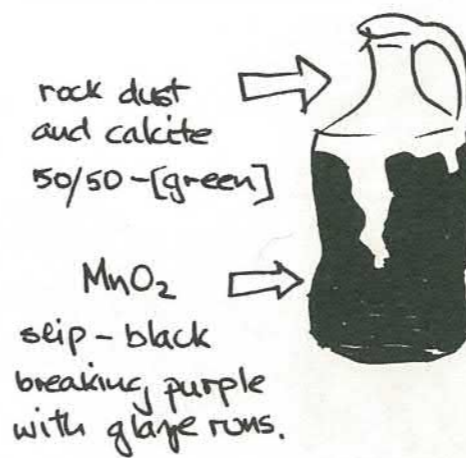 rock dust
and calcite
50/50-[green]
MnO2
slip - black
breaking purple
with glaze runs.